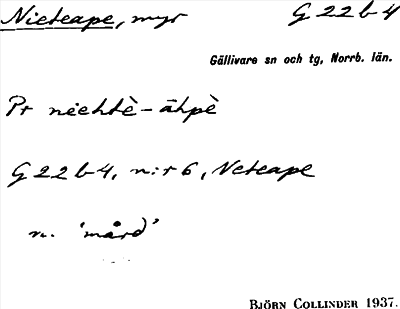 Nieteape, myr G 22 b 4
Gällivare sn och tg, Norrb. län.
Pr nèehtè-āhpè
G 22 b 4, n:r 6, Neteape
n. 'mård'
BJÖRN COLLINDER 1937.